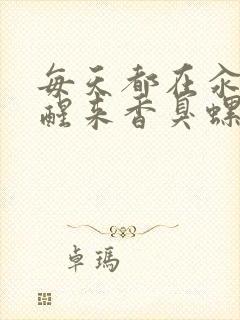 每天都在汆
醒来香臭螺
卓瑪